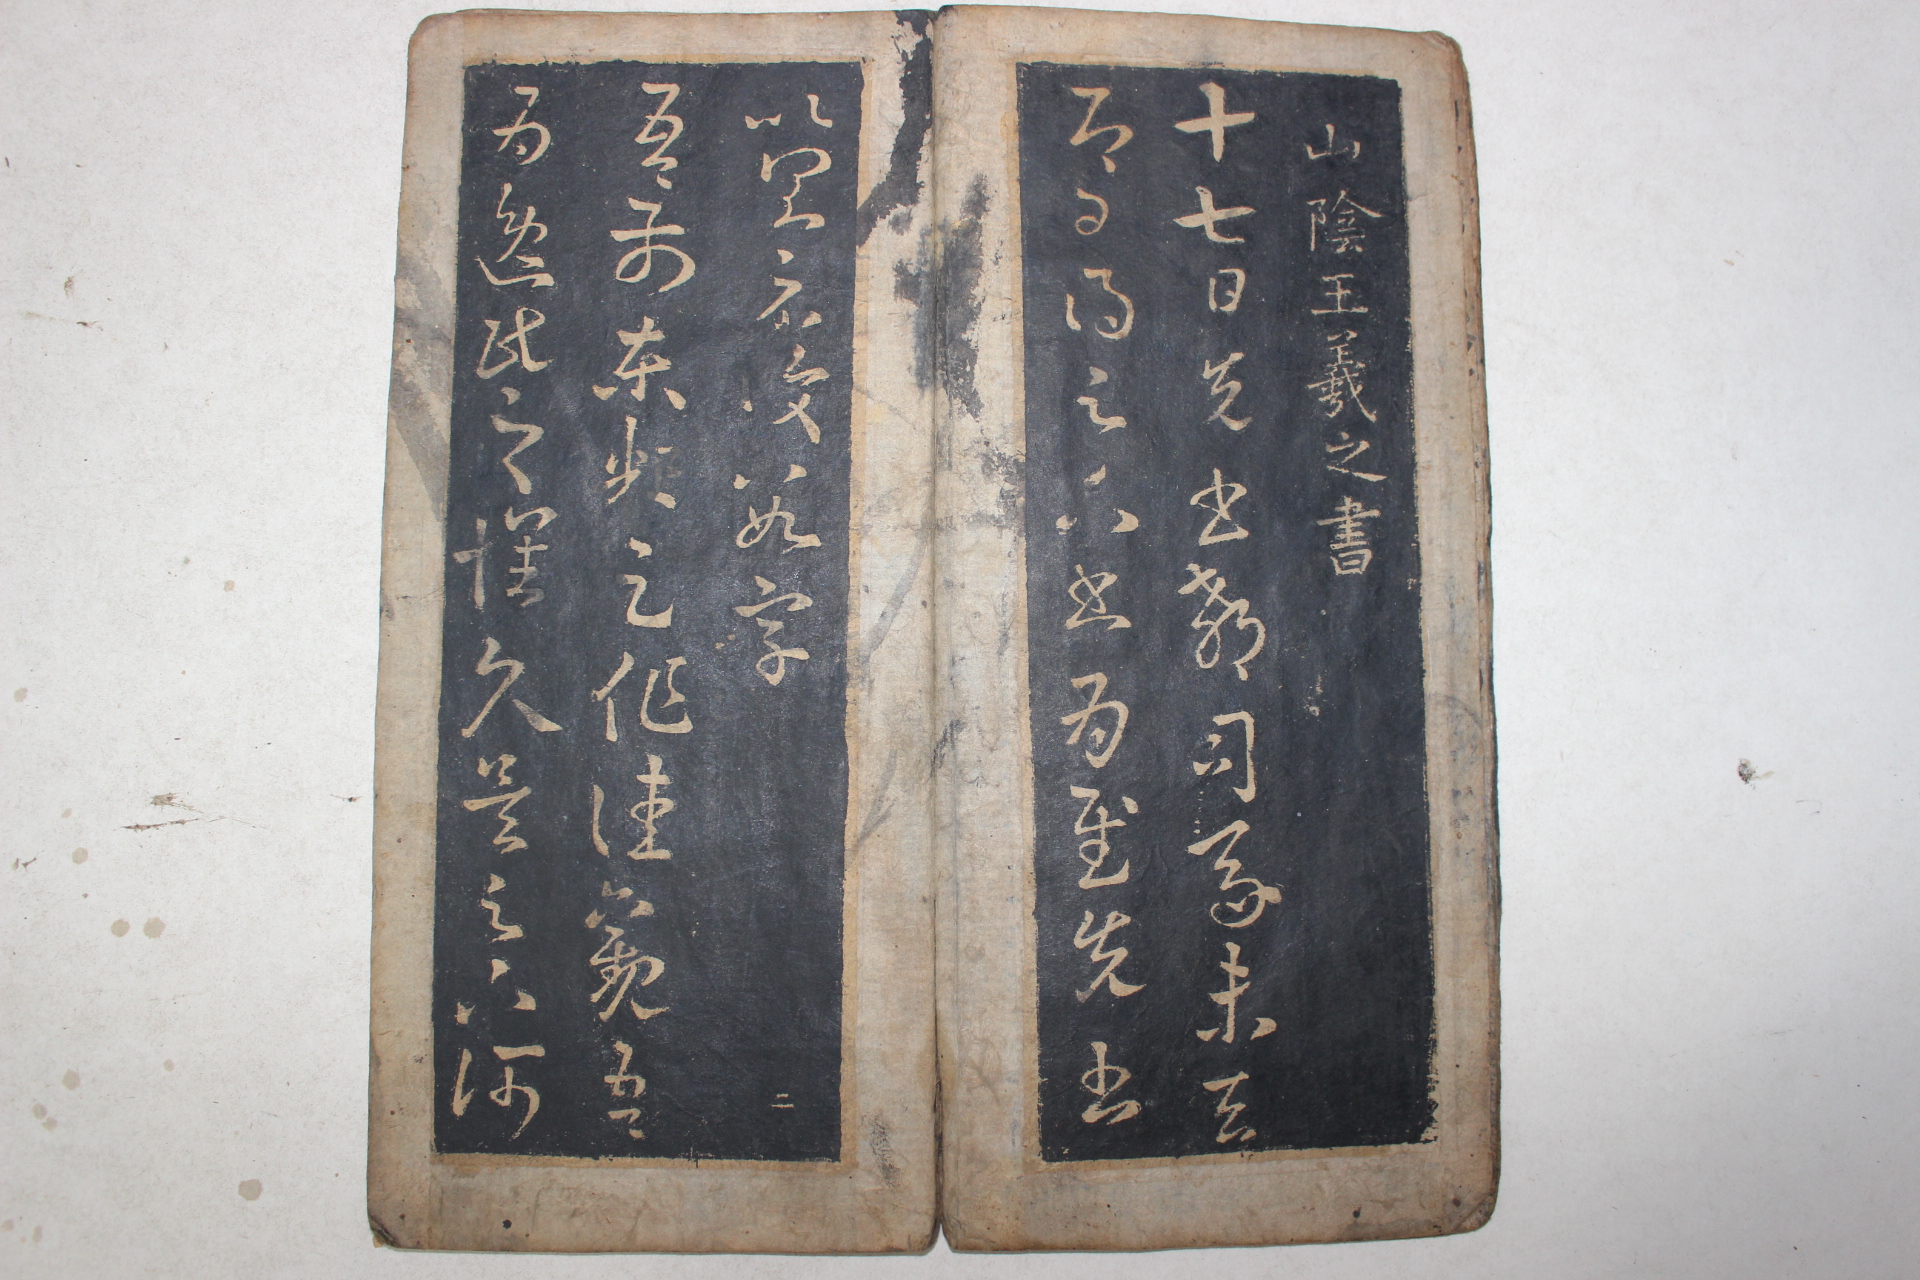 山陰王羲之書
十七日先書郗司馬未去
即日得足下書為慰先書
以具示復數字
二
吾前東粗足作佳觀吾
為逸民之懷久矣足下何